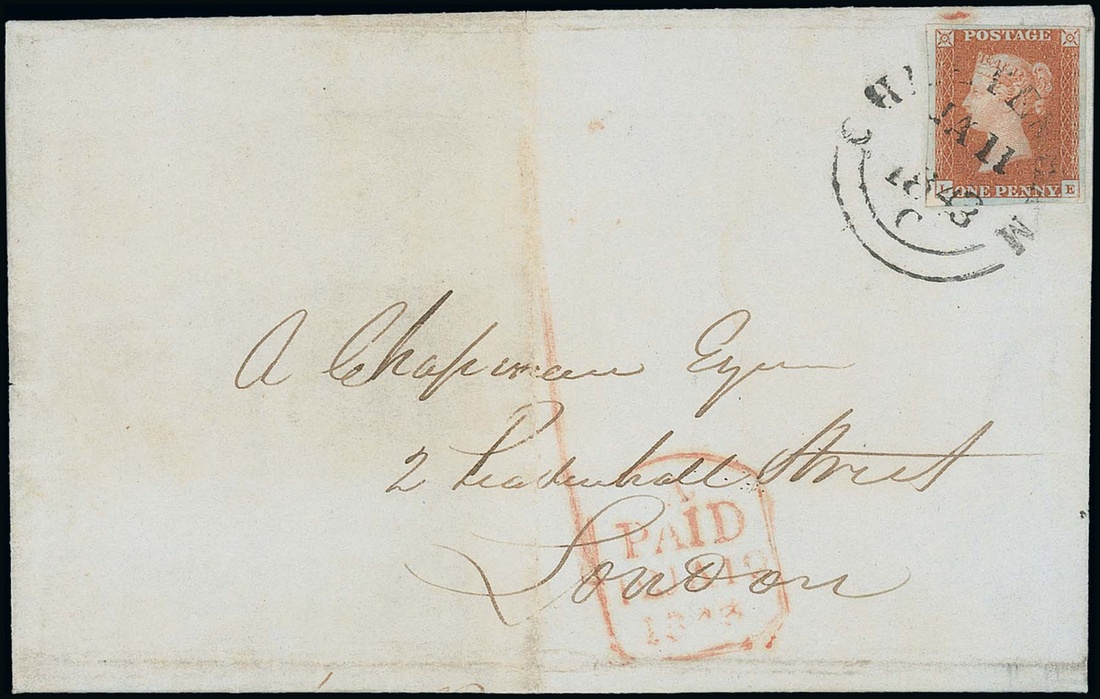 POSTAGE
JA 11
1843
C
ONE PENNY E
A Chapman Esqre
2 Leadenhall Street
London
PAID
1843